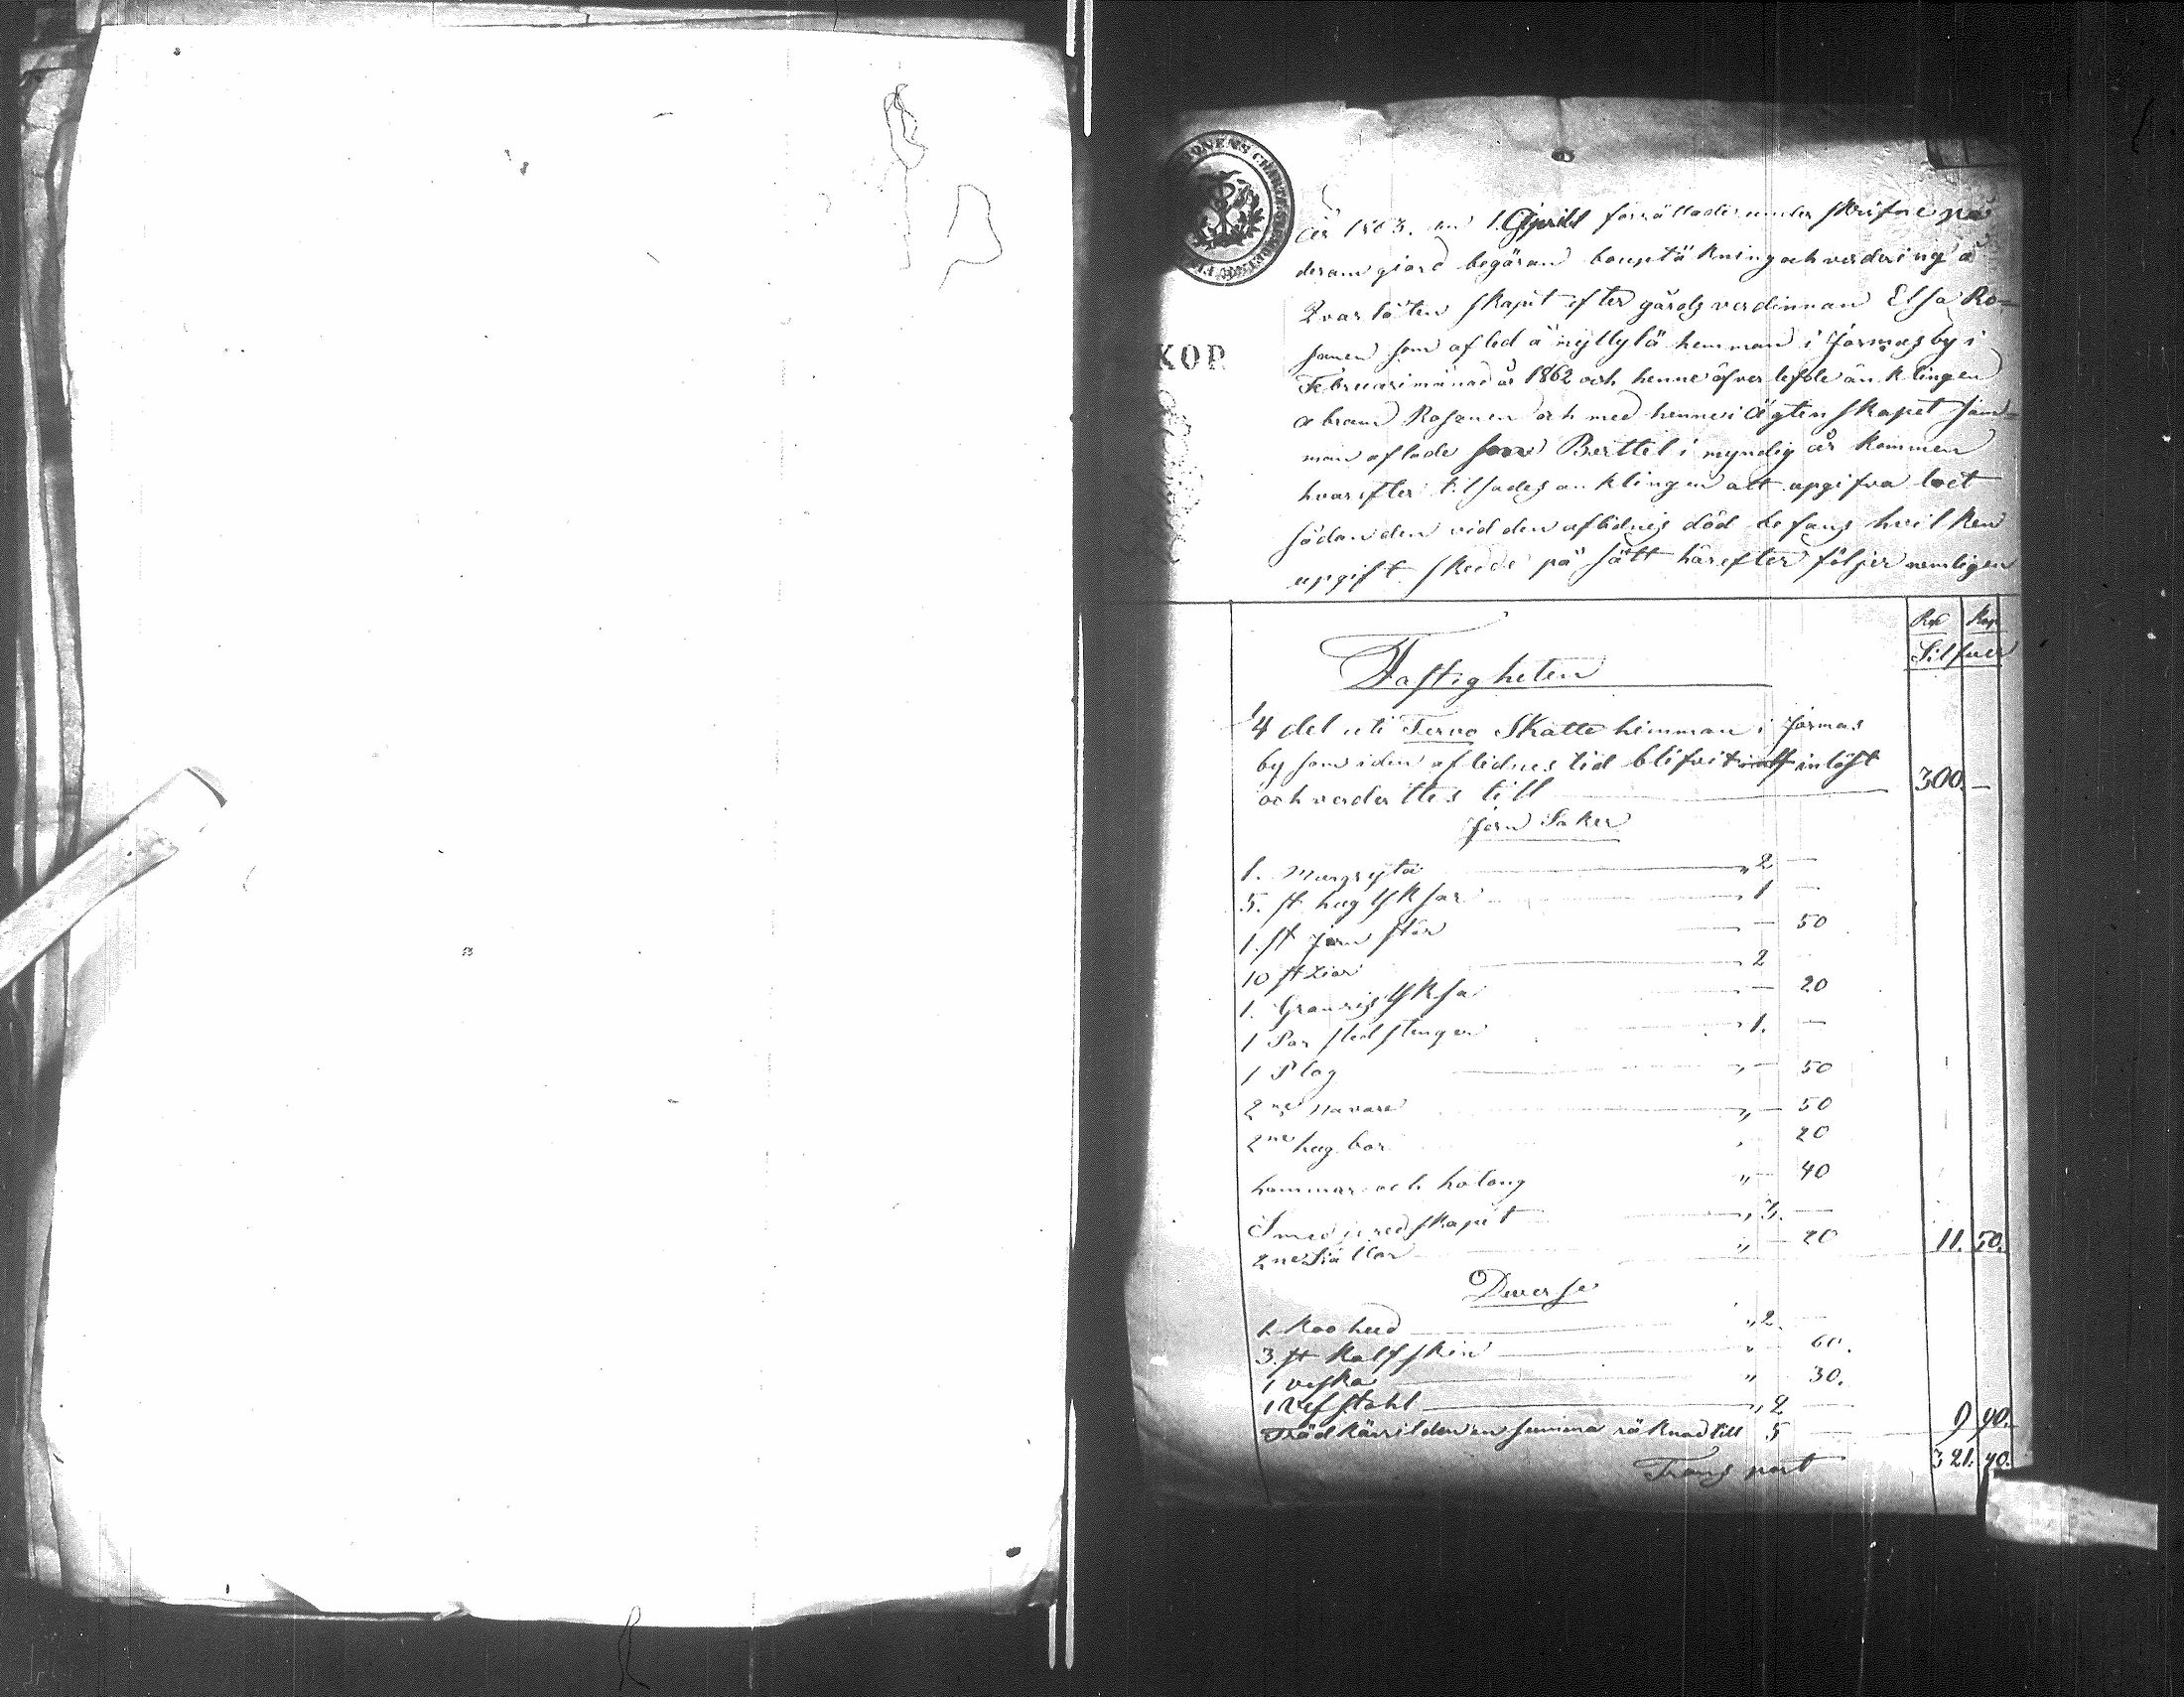 KOP.
År 1863. den 1 Aprill förrättade under skrifne på
deram giord begäran bouptäkning och verdering å
Qvarlåtenskapet efter gårdsverdinnan Elsa Ro-
sanen som afled å nyllylä hemman i Jormasby i
Februari månad år 1862 och henne öfverlefde änklingen
Abram Rosanen och med henne i Ägtenskapet sam-
man aflade son Berttel i myndig år kommen
hvarefter tilsades anklingen att upgifva boet
sådan den vid den aflidnes död befans hvilken
upgift skedde på sätt härefter följer nemligen
Rub Kop
Silfver
Fastigheten
1/4 del uti Tervo Skatte hemman i Jormas
by som i den aflidnes tid blifvit inlöst
och verderttes till 300. —
Jern Saker
1. Murgryta " 2 —
5. st hug yksar " 1 —
1. st Jern stör — 50
10 st Liar " 2
1. Granris yksa — 20
1 Par sled stenger " 1. —
1 Plog " — 50
2ne navare " — 50
2ne hug bor " 20
hammar och hotong " — 40
Smed redskapet " 3. —
2ne Siällar " — 20 11. 50.
Diverse
1 koo hud " 2. —
3. st kalfskin " 60.
1 veska " 30.
1 Vefstohl " 2 —
Trädkärilden en summa räknad till 5 — 9 90.
Transport 321. 40.